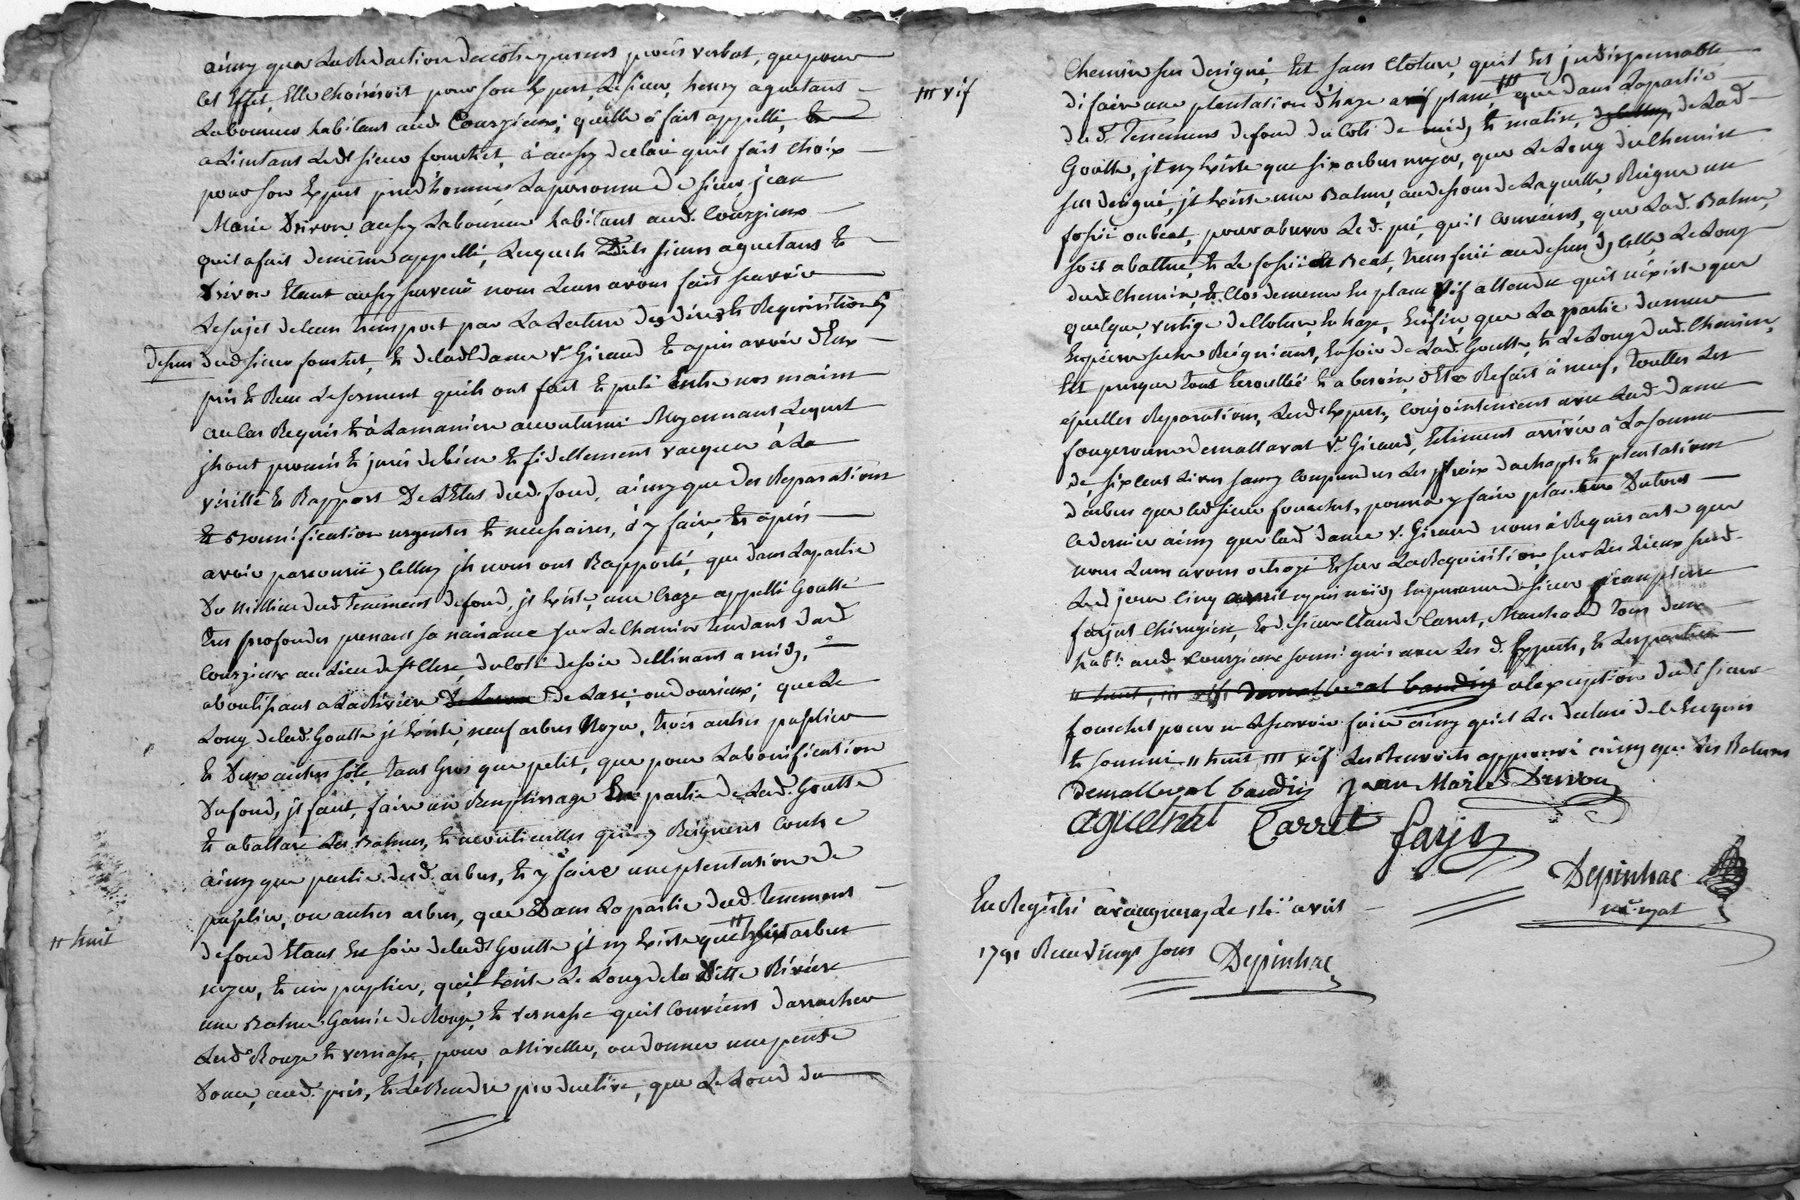 ainsy que la Redaction de notre present procès verbal, que pour
cet Effet, Elle choisissoit pour son Expert, le sieur henry aguetant
Laboureur habitant aud. Courzieux, qu'elle à fait appellé,
a L'instant led. sieur fouchet, à aussy declaré qu'il fait choix
pour son Expert prud'homme, la personne de sieur jean
Marie Drivon aussy Laboureur habitant aud. Courzieux
qu'il a fait de meme appellé, Lesquels dits sieurs aguetant Et
Drivon Etant aussy survenû nous Leurs avons fait scavoir
Le sujet de leur transport par La Lecture des dires Et Requisitions
dessus dud. sieur fouchet, Et de lad. dame v.e Giraud Et après avoir d'Eux
pris Et Reçu le serment qu'ils ont fait Et preté Entre nos mains
au Cas Requis Et à La maniere accoutumé Moyennant Lequel
ils ont promis Et juré de bien Et fidellement vacquer à La
visitte Et Rapport De L'Etat dud. fond, ainsy que des Reparations
Et Bonnification urgentes Et necessaires, d'y faire, Et après
avoir parcourû jcelluy jls nous ont Rapporté, que dans La partie
Du Millieu dud. tenement de fond, jl Existe, une Craze appellé Goutte
tres profondes prenant sa naissance sur Le Chemin tendant dud.
Courzieux au Lieu de St Clere, du Coté de soir dellinant a midy,
aboutissant a La Riviere De Lasé, ou dorieux; que Le
Long de lad. Goutte jl Existe, neuf arbres Noyer, trois autres puplier
Et Deux autres sole, tant Gros que petit, que pour La bonification
Du fond, jl faut, faire un Remplissage En partie de Lad. Goutte
Et abattre Les Balmes, Et monticulles qui y Reignent Contre
ainsy que partie desd. arbres, Et y faire une plentation de
puplier, ou autres arbres, que Dans La partie dud. tenement
" huit
de fond Etant En soir de lad. Goutte jl ny Existe que " arbres
noyer, Et un puplier, que Existe Le Long de la Ditte Riviere
une Balme Garnie de Ronze Et vernasse qu'il Convient d'arracher
Lesd. Ronze Et vernasse, pour a Niveller, ou donner une pente
Douce, aud. prés, Et Le Rendre productive, que Le Lond du
''' vif
Chemin sus designé, Est sans Cloture, qu'il Est jndispensable
di faire une plentation d'haye a plant, ''' que dans La partie
du d. tenement de fond du Coté de midy Et matin, de Lad.
Goutte, jl ny Existe que six arbres noyer, que Le Long du Chemin
sus designé, jl Existe une Balme, au dessous de Laquelle, Reigne un
fossé ou béat, pour abreuver Le d. pré, qu'il Convient, que Lad. Balme,
soit abattue, Et Le fossé ou Beat, transferé au dessus d'jcelle Le Long
dud. Chemin, Et Clos de meme En plant vif attendu qu'il n'existe que
quelque vestige de Cloture En haye, Enfin, que La partie du mur
En pierre seche Reigniant, En soir de Lad. Goutte, Et Le Long dud. Chemin,
Est presque tout Ecroullé Et a besoin d'Etre Refait à neuf, touttes Les
quelles Reparations, Lesd. Experts, Conjointement avec Lad. Dame
fougerouse demallaval v.e Giraud, Estiment arrivée à La somme
de, six Cent Livres sans y Comprendre Les prix d'achapts Et plentations
d'arbres que led. sieur fouchet, pourra y faire planter Du tout
Ce dernier ainsy que lad. dame v. Giraud nous à Requis acte que
nous Leurs avons octroyé En sur La Requisition, sur Les Lieux sus d.
Led. jour cinq avril après midy En presence de sieur jean pierre
fayat Chirugien, Et de sieur Claude Carret, Marchand tous deux
habts. aud. Courzieux soussignés avec Les d. Experts, Et Les parties
a L'exception dud. sieur
fouchet pour ne Le scavoir faire ainsy qu'il L'a declaré de Ce Enquis
Et sommé " huit, ''' vif Les Renvoits approuvé ainsy que Les Ratures
demallaval baudin Jean Marie Drivon
aguettant Carret fayat
Depinhac
no.re royal
Enregistré avaugneray Le avril
1791 Reçu vingt sous Depinhac